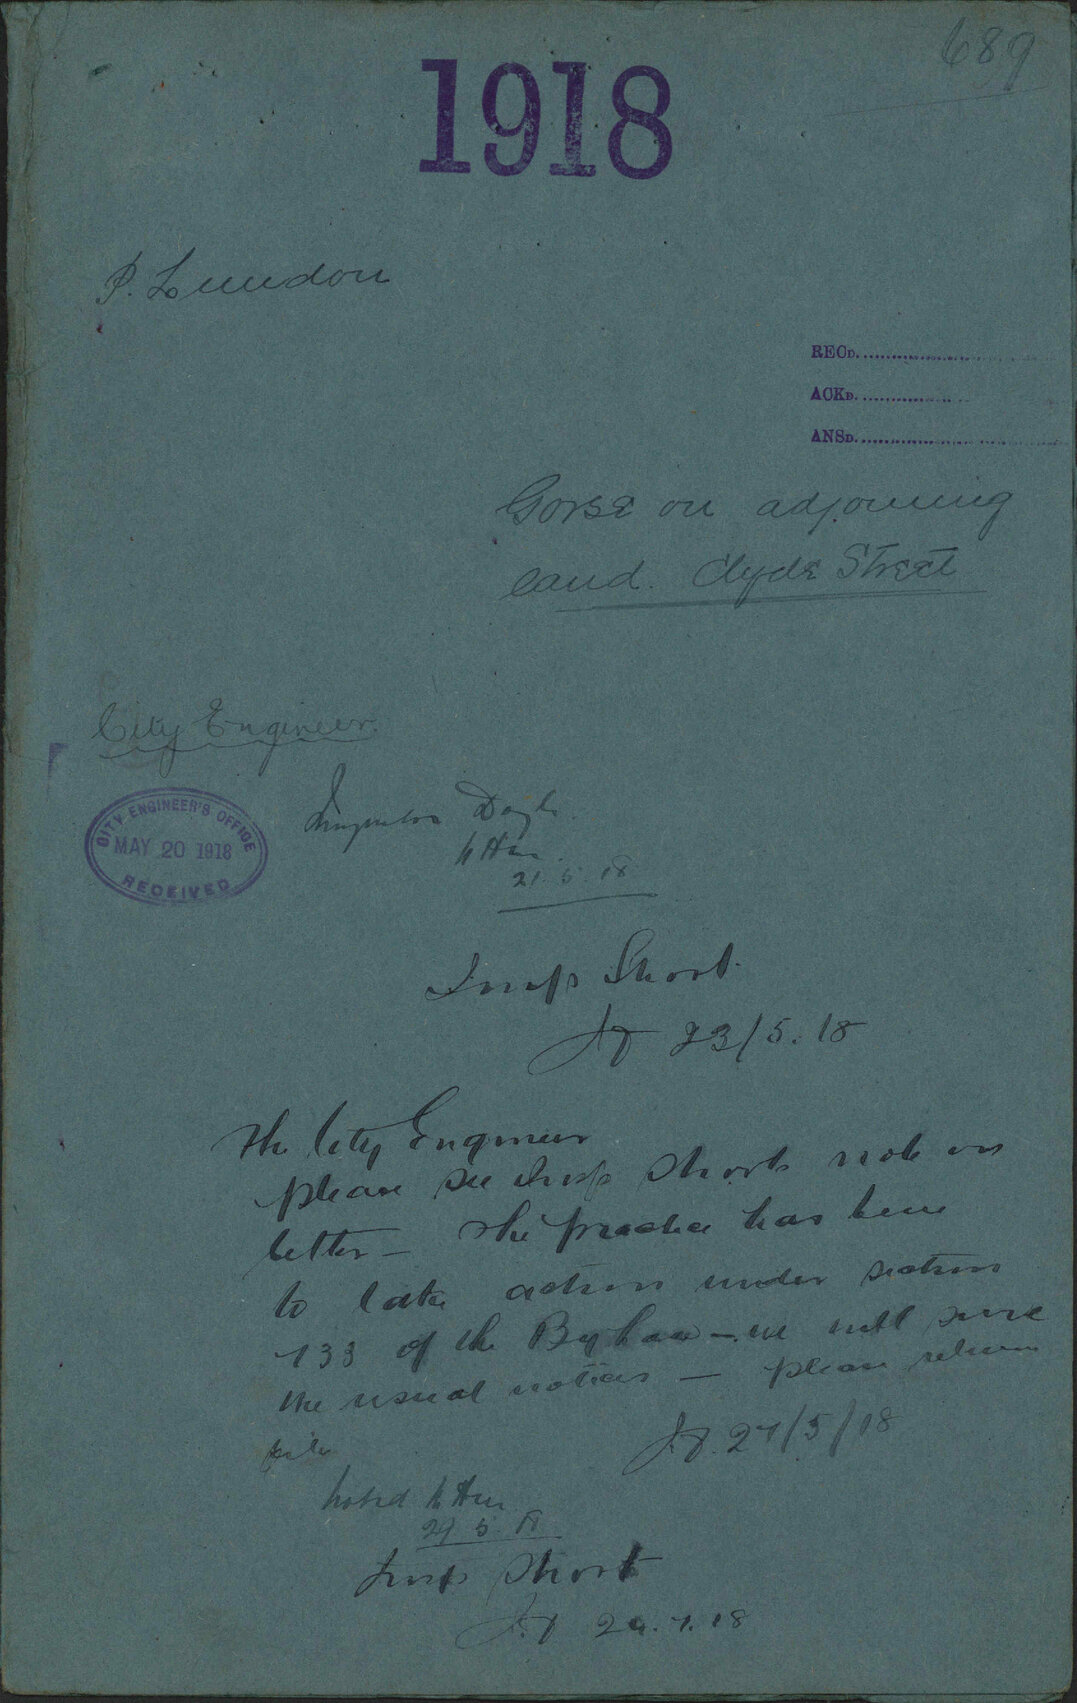 689
1918
P. Lundon
RECD.
ACKD.
ANSD.
Gorse on adjoining
land. Clyde Street
City Engineer.
CITY ENGINEER'S OFFICE
MAY 20 1918
RECEIVED
Inspector Doyle
21.5.18
Insp Short.
JD 23/5.18
The City Engineer
please see Insp Shorts note on
letter - The practice has been
to take action under section
133 of the By Law - we will serve
the usual notices - please return
file
JD. 27/5/18
Noted
29 5 18
Insp Short
JD 24.7.18